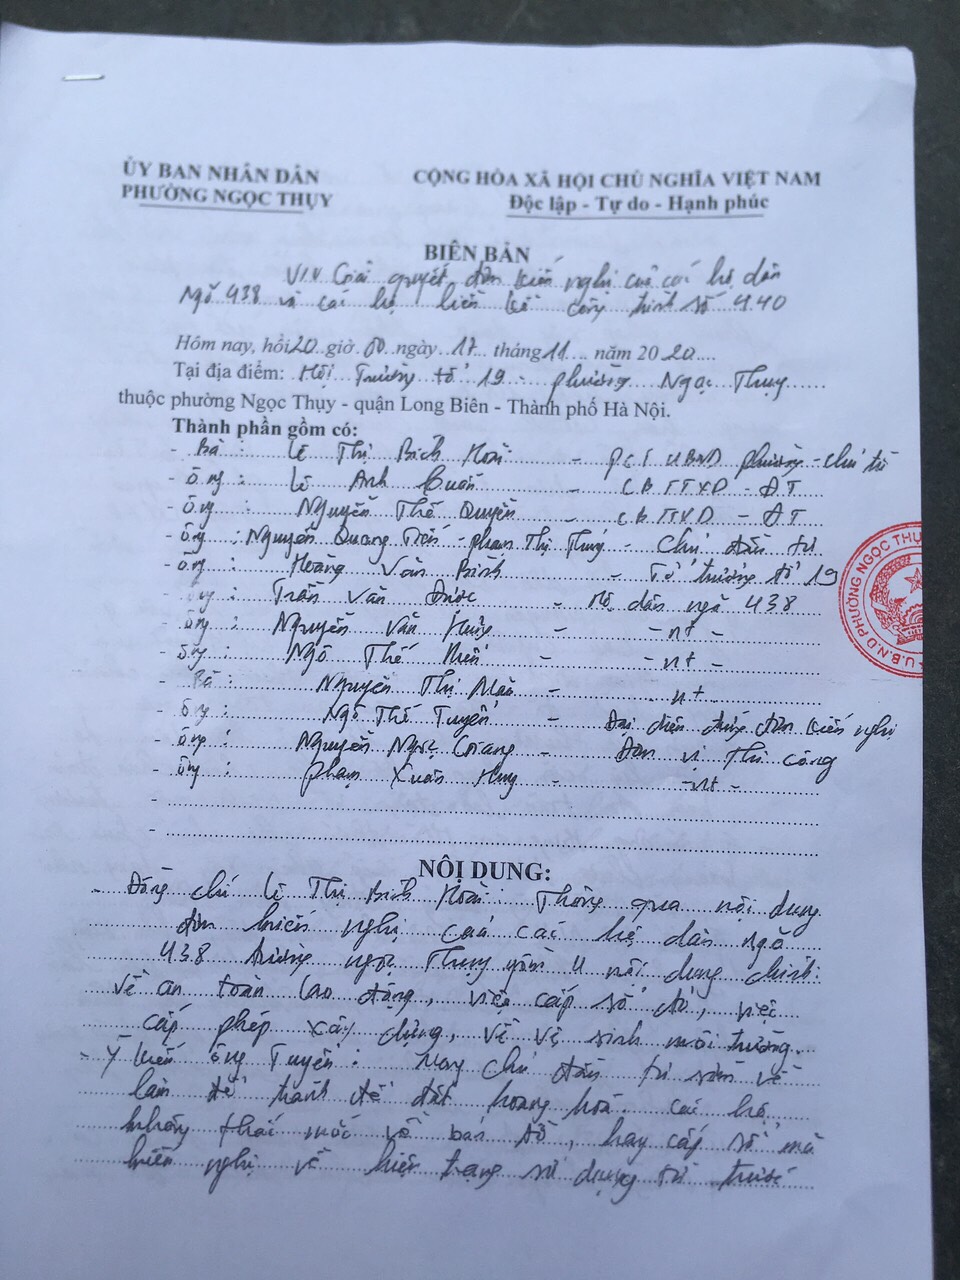 ỦY BAN NHÂN DÂN
PHƯỜNG NGỌC THỤY
CỘNG HÒA XÃ HỘI CHỦ NGHĨA VIỆT NAM
Độc lập - Tự do - Hạnh phúc
BIÊN BẢN
V/v Giải quyết đơn kiến nghị của các hộ dân
Ngõ 438 và các hộ liền kề công trình số 440
Hôm nay, hồi 20 giờ 00 ngày 17 tháng 11 năm 2020
Tại địa điểm: Hội Trường tổ 19 - phường Ngọc Thụy
thuộc phường Ngọc Thụy - quận Long Biên - Thành phố Hà Nội.
Thành phần gồm có:
- Bà : Lê Thị Bích Hoài - PCT UBND phường - chủ trì
- Ông : Lê Anh Tuấn - CB TTXD - ĐT
- Ông : Nguyễn Thế Quyền - CB TTXD - ĐT
- Ông : Nguyễn Quang Tiến - Phạm Thị Thúy - Chủ đầu tư
- Ông : Hoàng Văn Bính - Tổ trưởng tổ 19
- Ông : Trần Văn Được - Hộ dân ngõ 438
- Ông : Nguyễn Văn Hùng - nt -
- Ông : Ngô Thế - nt -
- Bà : Nguyễn Thị - nt
- Ông : Ngô Thế Tuyến - Đại diện đứng đơn kiến nghị
- Ông : Nguyễn Ngọc Giang - Đơn vị Thi công
- Ông : Phạm Xuân Huy - nt -
NỘI DUNG:
- Đồng chí Lê Thị Bích Hoài : Thông qua nội dung
đơn kiến nghị của các hộ dân ngõ
438 đường Ngọc Thụy gồm 4 nội dung chính:
Về an toàn lao động, việc cấp sổ đỏ, việc
cấp phép xây dựng, về vệ sinh môi trường.
- Ý kiến ông Tuyến : chủ đầu tư sớm về
làm để tránh để đất hoang hoá. Các hộ
không thắc mắc về bản đồ, hay cấp sổ mà
kiến nghị về hiện trạng sử dụng từ trước
U.B.N.D PHƯỜNG NGỌC THỤ